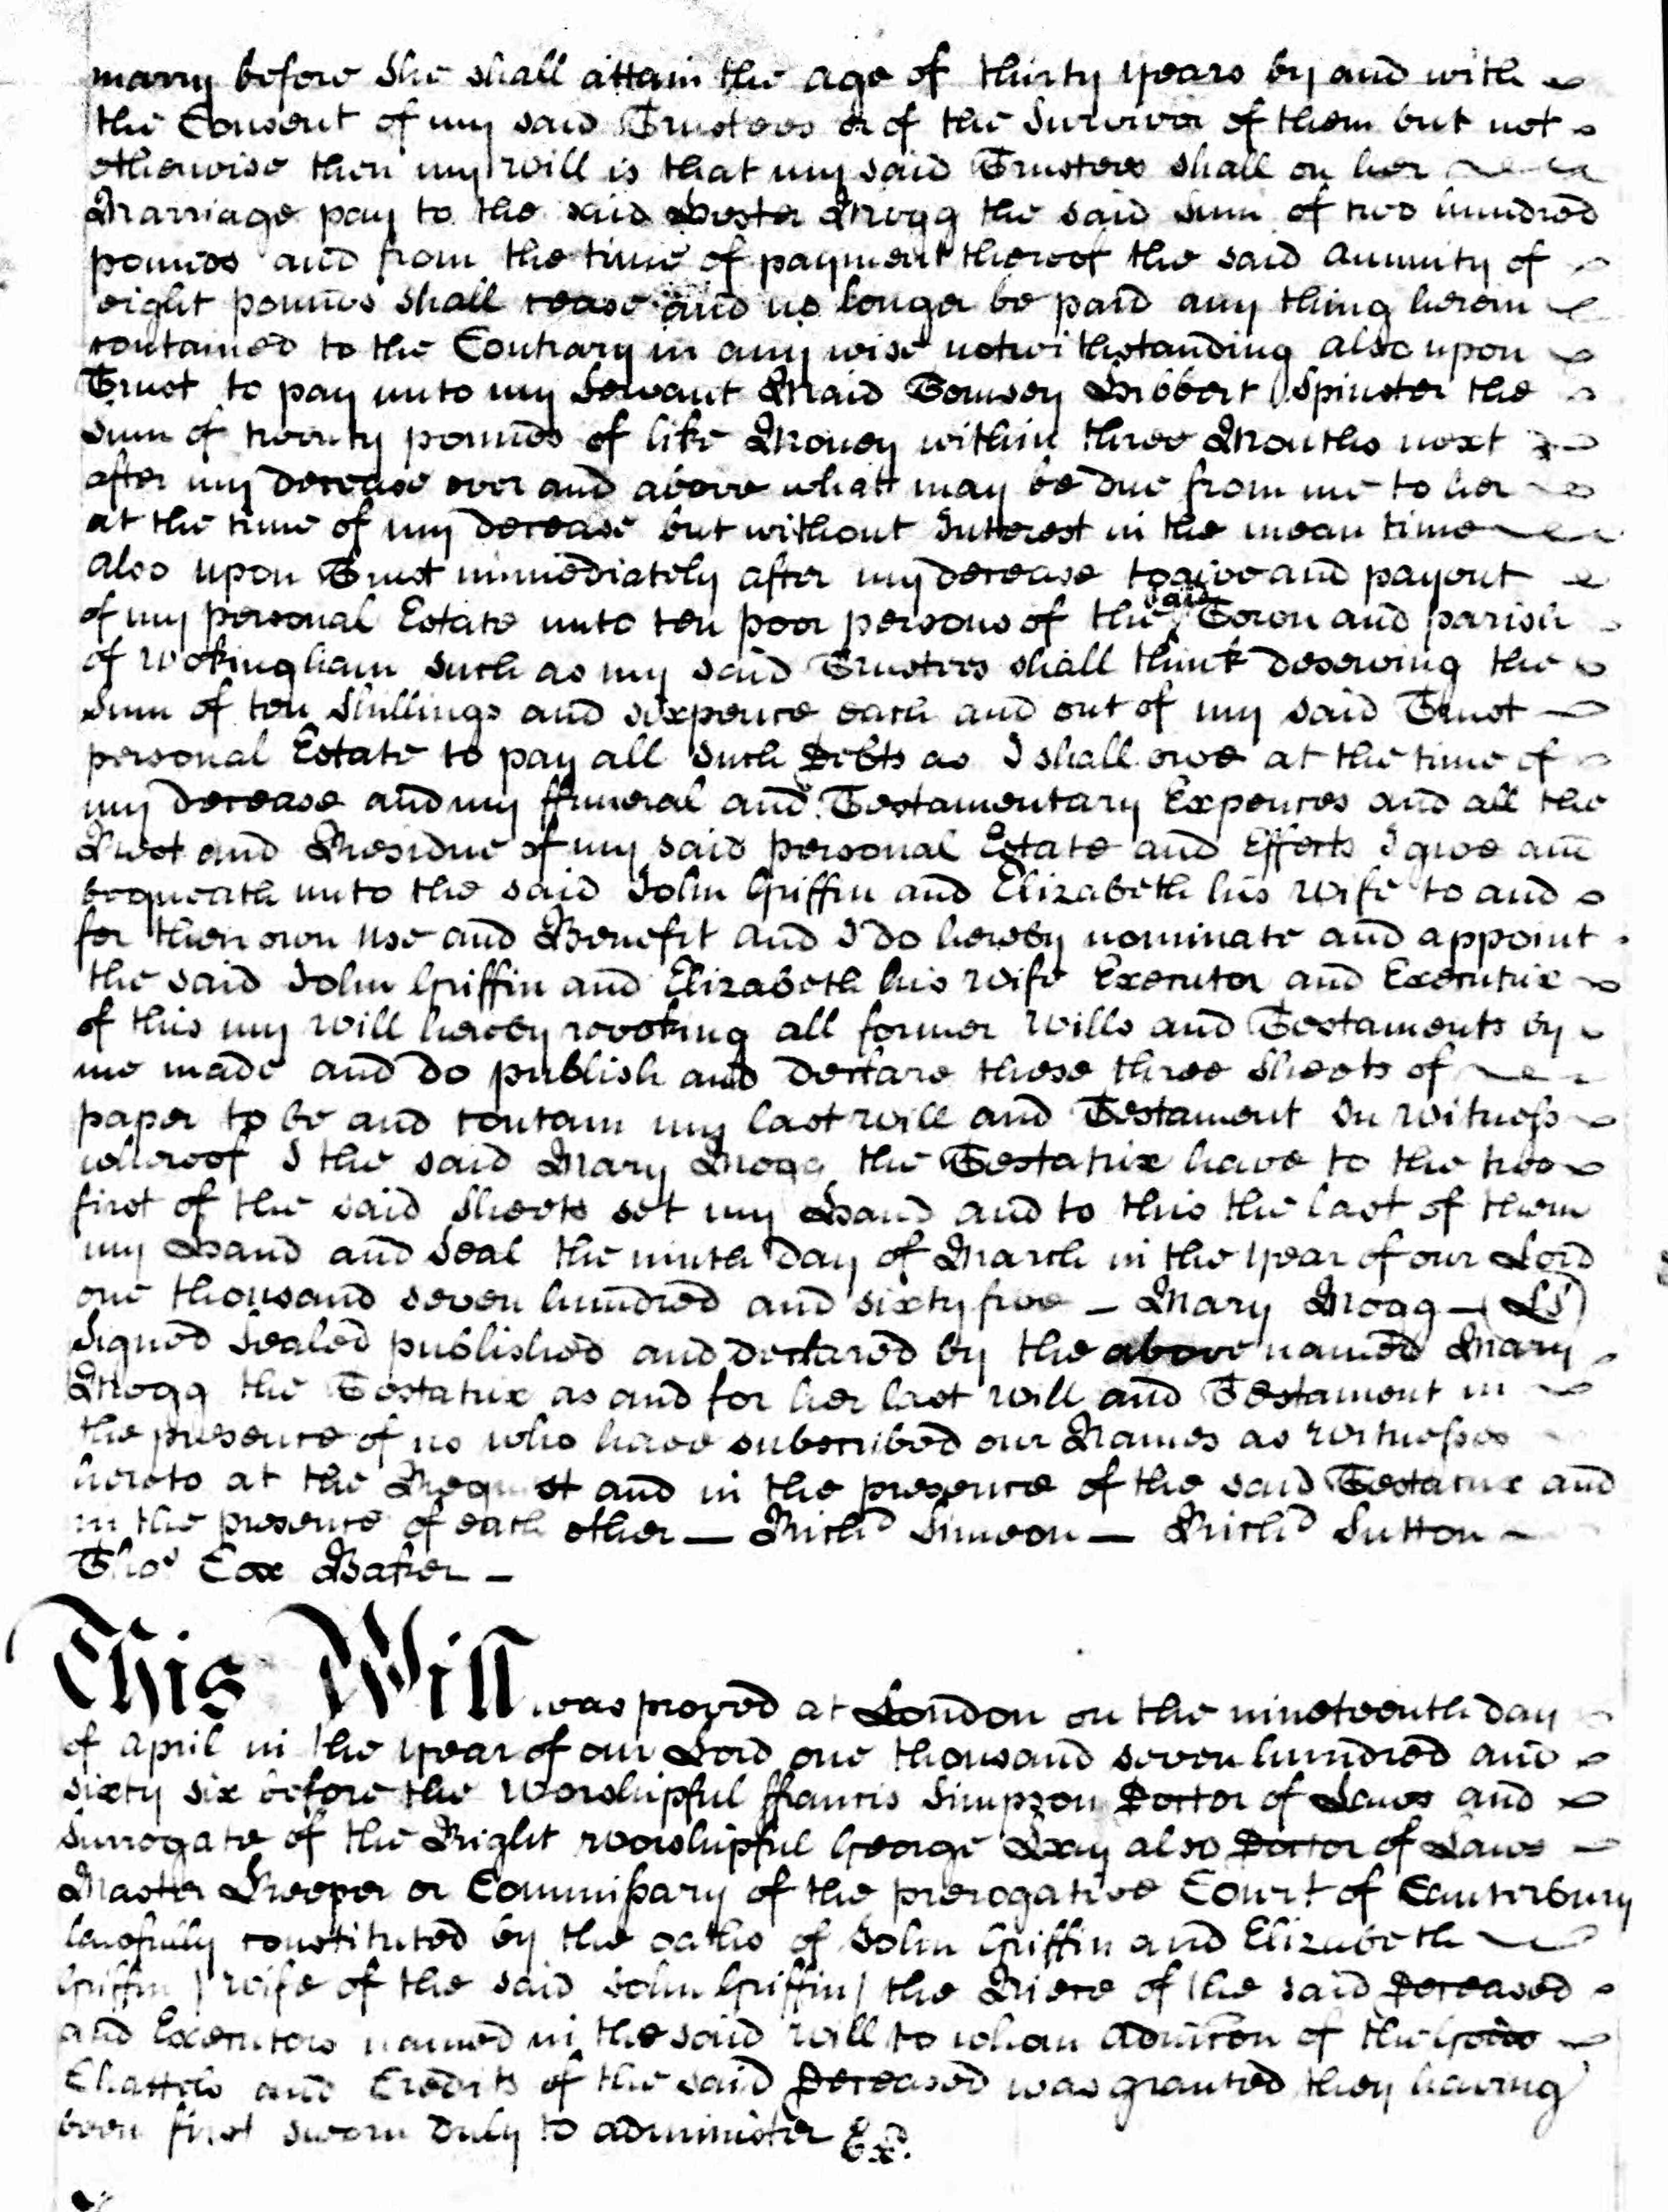 marry before She shall attain the age of thirty years by and with
the Consent of my said Trustees or of the Survivor of them but not
otherwise then my will is that my said Trustees shall on her
Marriage pay to the said Hester Mogg the said Sum of two hundred
pounds and from the time of payment thereof the said annuity of
eight pounds shall cease and no longer be paid any thing herein
contained to the Contrary in any wise notwithstanding also upon
Trust to pay unto my Servant Maid Tomsey Hibbert Spinster the
Sum of twenty pounds of like Money within three Months next
after my decease over and above what may be due from me to her
at the time of my decease but without Interest in the mean time
also upon Trust immediately after my decease to give and pay out
of my personal Estate unto ten poor persons of the said Town and parish
of Wokingham such as my said Trustees shall think deserving the
Sum of ten Shillings and sixpence each and out of my said Trust
personal Estate to pay all Such Debts as I shall owe at the time of
my decease and my ffuneral and Testamentary Expences and all the
Rest and Residue of my said personal Estate and Effects I give and
bequeath unto the said John Griffin and Elizabeth his Wife to and
for their own use and Benefit and I do hereby nominate and appoint
the said John Griffin and Elizabeth his Wife Executor and Executrix
of this my Will hereby revoking all former Wills and Testaments by
me made and do publish and declare these three Sheets of
paper to be and contain my last will and Testament In Witness
whereof I the said Mary Mogg the Testatrix have to the two
first of the said Sheets set my Hand and to this the last of them
my Hand and Seal the ninth day of March in the year of our Lord
one thousand seven hundred and sixty five – Mary Mogg – (LS)
Signed Sealed published and declared by the above named Mary
Mogg the Testatrix as and for her last Will and Testament in
the presence of us who have subscribed our Names as Witnesses
hereto at the Request and in the presence of the said Testatrix and
in the presence of each other – Richd Simeon – Richd Sutton –
Thos Cox Baker –
This Will was proved at London on the nineteenth day
of April in the year of our Lord one thousand seven hundred and
sixty six before the Worshipful ffrancis Simpson Doctor of Laws and
Surrogate of the Right Worshipful George Hay also Doctor of Laws
Master Keeper or Commissary of the prerogative Court of Canterbury
lawfully constituted by the oaths of John Griffin and Elizabeth
Griffin (Wife of the said John Griffin) the Niece of the said Deceased
and Executors named in the said Will to whom admicon of the Goods
Chattels and Credits of the said Deceased was granted they having
been first sworn duly to administer Exd.